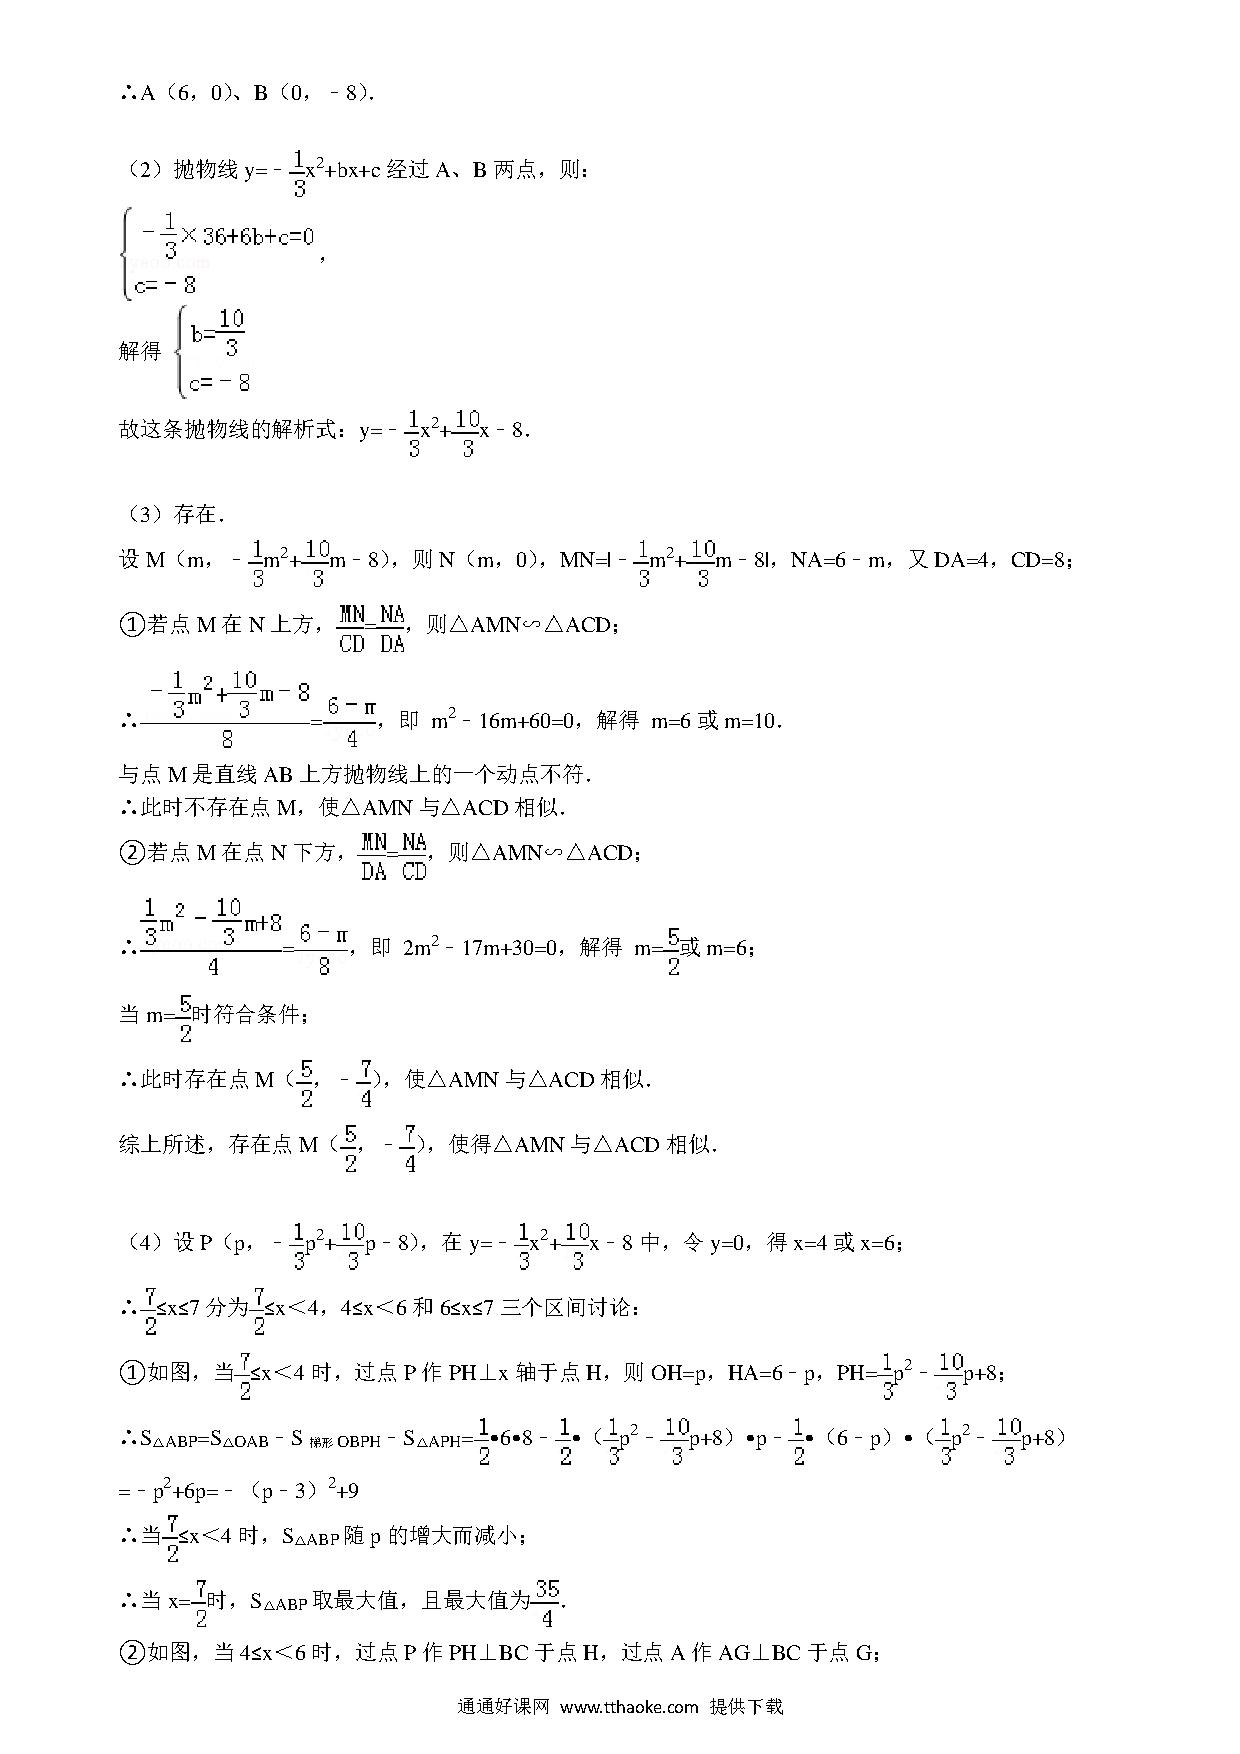 ∴A（6，0）、B（0，﹣8）．
（2）抛物线 y=﹣1/3x²+bx+c 经过 A、B 两点，则：
{﹣1/3×36+6b+c=0
c=﹣8，
解得 {b=10/3
c=﹣8
故这条抛物线的解析式：y=﹣1/3x²+10/3x﹣8．
（3）存在．
设 M（m，﹣1/3m²+10/3m﹣8），则 N（m，0），MN=|﹣1/3m²+10/3m﹣8|，NA=6﹣m，又 DA=4，CD=8；
①若点 M 在 N 上方，MN/CD=NA/DA，则△AMN∽△ACD；
∴(﹣1/3m²+10/3m﹣8)/8=(6﹣m)/4，即 m²﹣16m+60=0，解得 m=6 或 m=10．
与点 M 是直线 AB 上方抛物线上的一个动点不符．
∴此时不存在点 M，使△AMN 与△ACD 相似．
②若点 M 在点 N 下方，MN/DA=NA/CD，则△AMN∽△ACD；
∴(1/3m²﹣10/3m+8)/4=(6﹣m)/8，即 2m²﹣17m+30=0，解得 m=5/2或 m=6；
当 m=5/2时符合条件；
∴此时存在点 M（5/2，﹣7/4），使△AMN 与△ACD 相似．
综上所述，存在点 M（5/2，﹣7/4），使得△AMN 与△ACD 相似．
（4）设 P（p，﹣1/3p²+10/3p﹣8），在 y=﹣1/3x²+10/3x﹣8 中，令 y=0，得 x=4 或 x=6；
∴7/2≤x≤7 分为7/2≤x＜4，4≤x＜6 和 6≤x≤7 三个区间讨论：
①如图，当7/2≤x＜4 时，过点 P 作 PH⊥x 轴于点 H，则 OH=p，HA=6﹣p，PH=1/3p²﹣10/3p+8；
∴S△ABP=S△OAB﹣S 梯形 OBPH﹣S△APH=1/2•6•8﹣1/2•（1/3p²﹣10/3p+8）•p﹣1/2•（6﹣p）•（1/3p²﹣10/3p+8）
=﹣p²+6p=﹣（p﹣3）²+9
∴当7/2≤x＜4 时，S△ABP 随 p 的增大而减小；
∴当 x=7/2时，S△ABP 取最大值，且最大值为35/4．
②如图，当 4≤x＜6 时，过点 P 作 PH⊥BC 于点 H，过点 A 作 AG⊥BC 于点 G；
通通好课网 www.tthaoke.com 提供下载